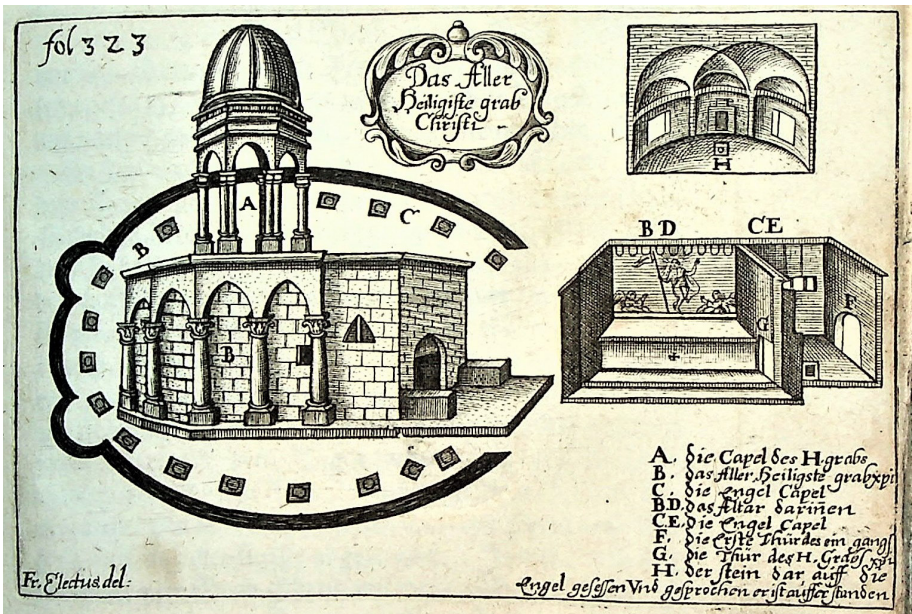 fol 323
Das Aller
Heiligiste grab
Christi
H
A
B
C
B
B D
C E
F
G
A. die Capel des H. grabs
B. das Aller Heiligste grab xpi
C. die Engel Capel
B D. das Altar darin̄en
C.E. die Engel Capel
F. die Erste Thür des ein gangs
G. die Thür des H. Grabs xpi
H. der stein dar auff die
Engel gesessen Vnd gesprochen er ist aufferstanden
Fr. Electus del: